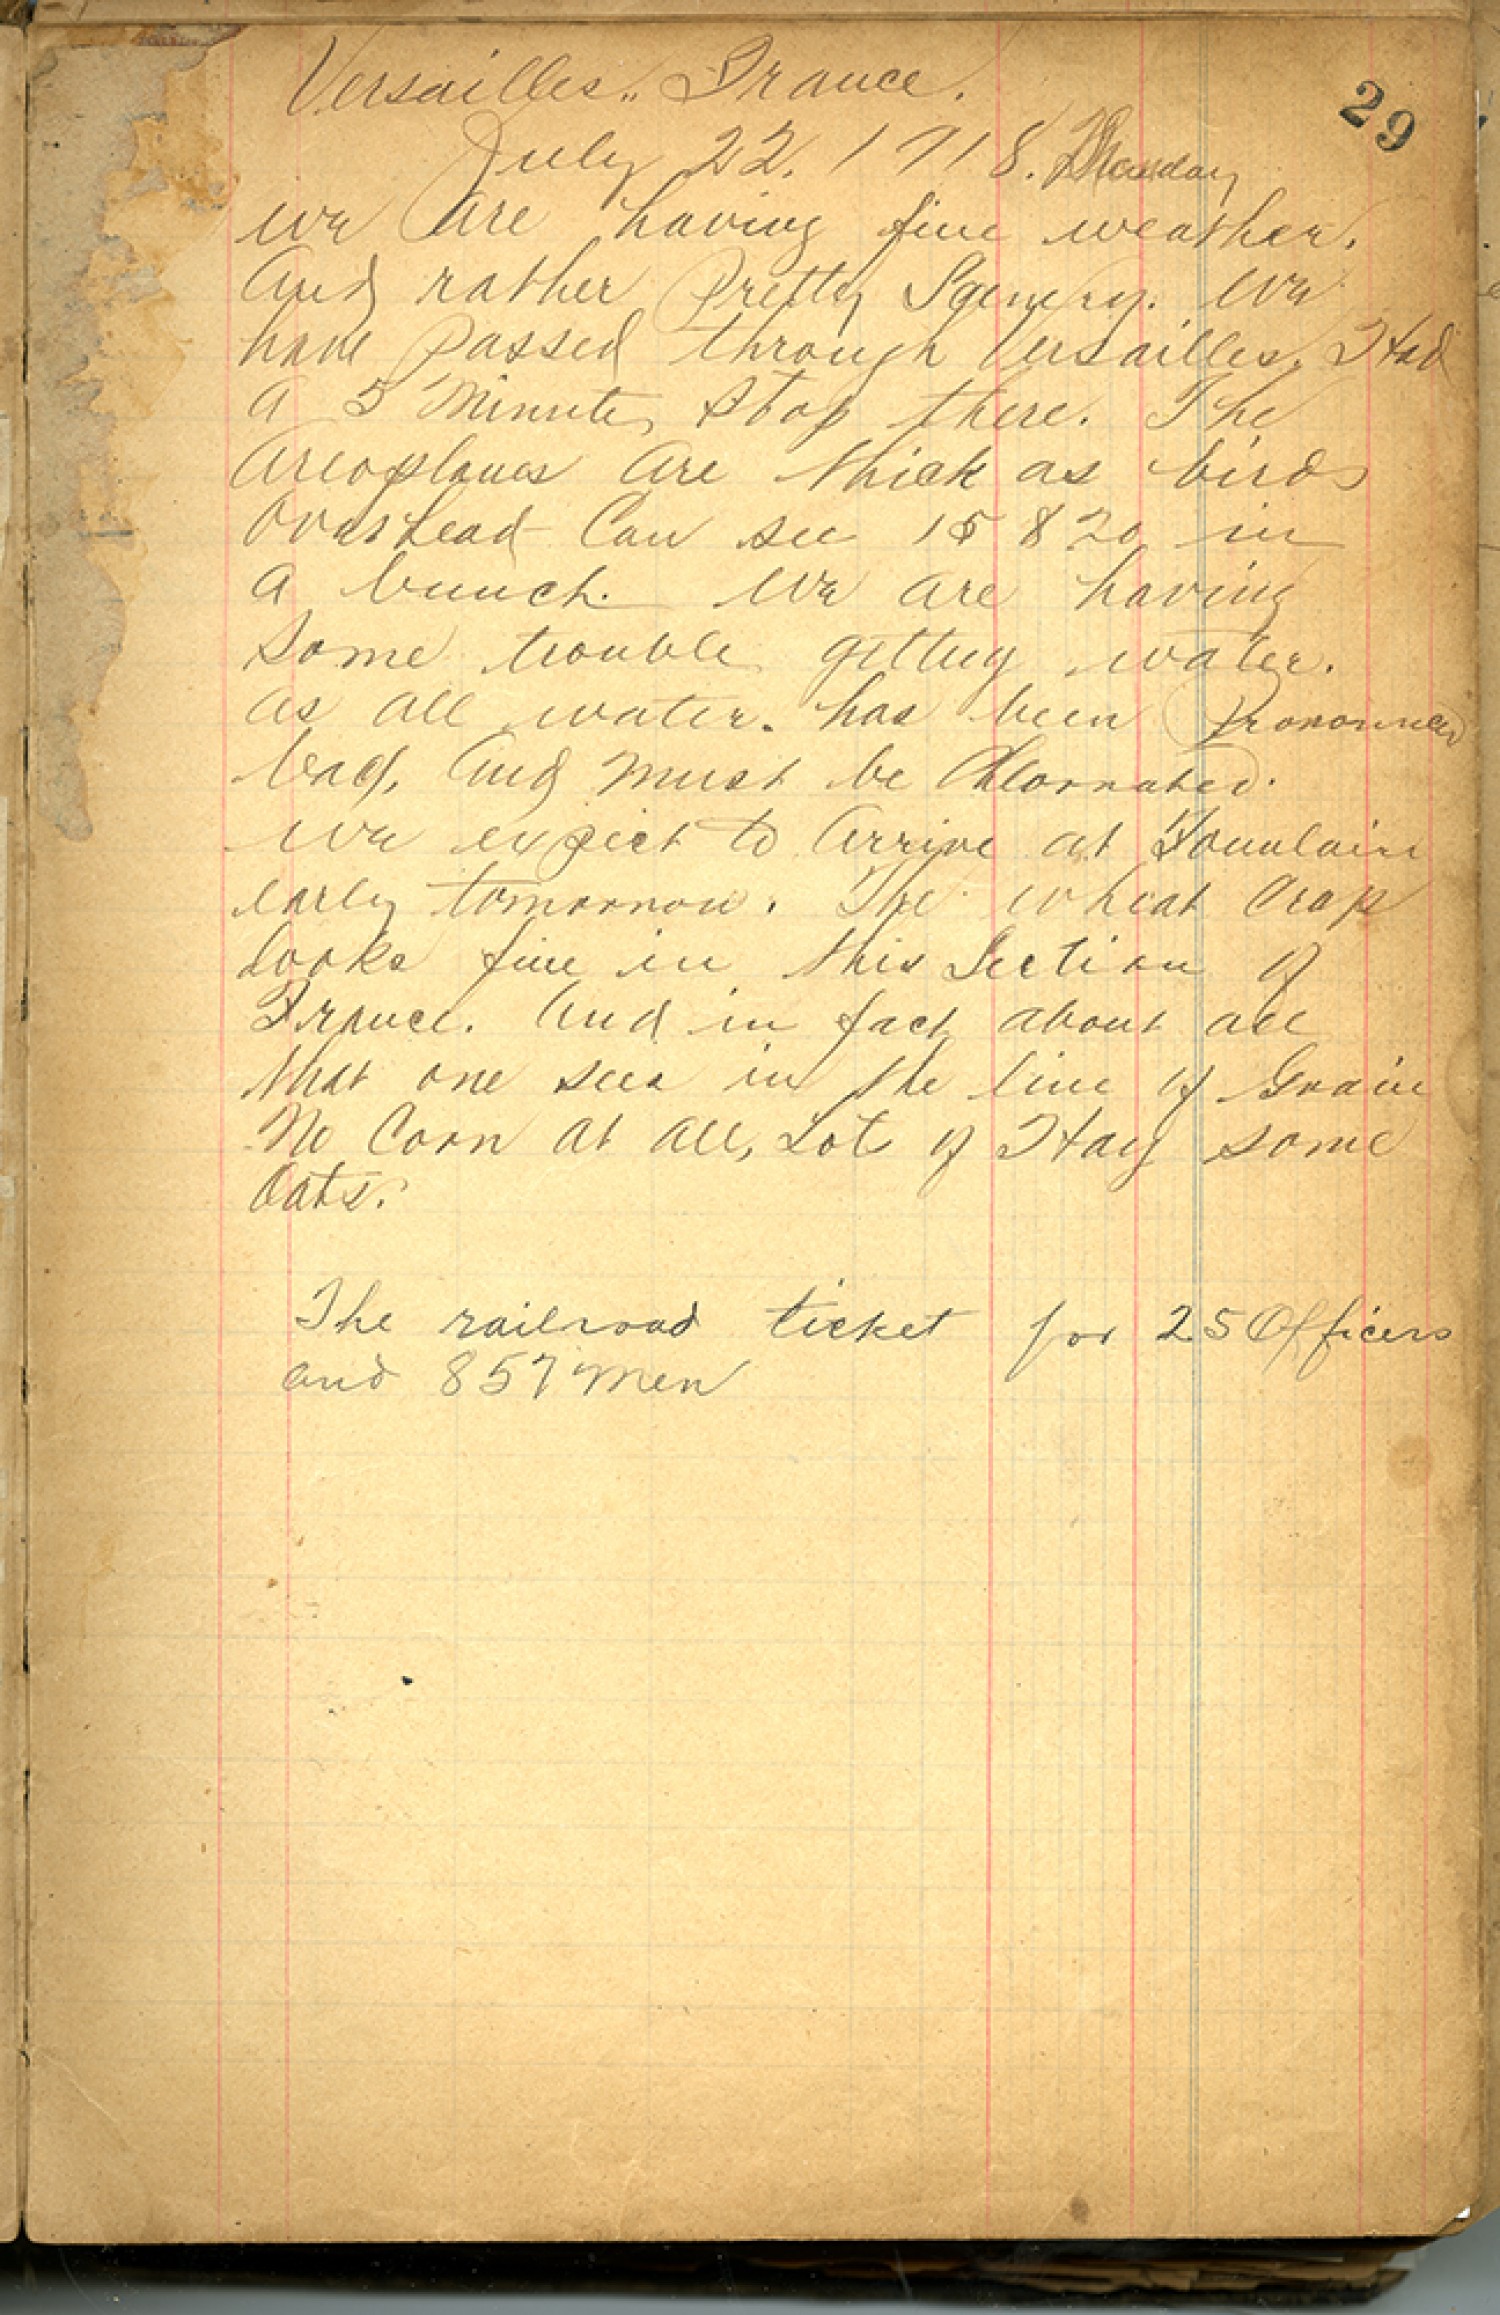 29
Versailles., France.
July 22. 1918. Monday
We are having fine weather.
And rather Pretty Scenery. We
have passed through Versailles, Had
a 5 Minute Stop there. The
Areoplanes are thick as birds
Overhead Can see 15 & 20 in
a bunch. We are having
Some trouble getting water.
as all water. has been Pronounced
bad, And Must be Chlornated.
We expect to Arrive at
early tomorrow. The wheat Crop
looks fine in this Section of
France. And in fact about all
that one sees in the line of Grain
No Corn at all, Lots of Hay some
Oats.
The railroad ticket for 25 Officers
and 857 Men